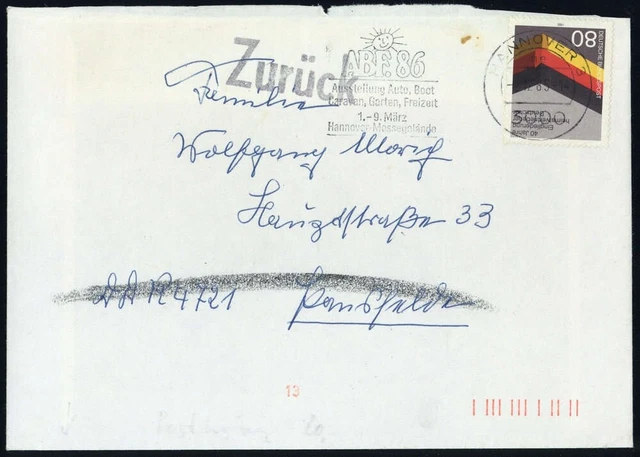 Zurück
ABF. 86
Ausstellung Auto, Boot
Caravan, Garten, Freizeit
1.-9. März
Hannover-Messegelände
HANNOVER
3000
80
DEUTSCHE BUNDESPOST
40 Jahre
Eingliederung
heimatvertriebener
Familie
Wolfgang Morich
Hauptstraße 33
DDR 4721 Pansfelde
13